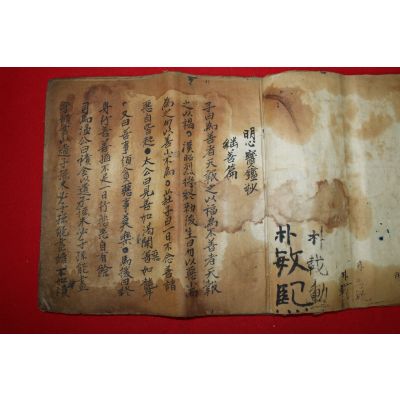 朴
動
朴敏
明心寶鑑抄
継善篇
子曰爲善者天報之以福爲不善者天報
之以禍。漢昭烈將終勅後主曰勿以惡小
爲之勿以善小不爲。莊子曰一日不念善諸
惡自皆起。太公曰見善如渴聞惡如聾
又曰善事須貪惡事莫樂。馬援曰終
身行善善猶不足一日行惡惡自有餘
司馬溫公曰積金以遺子孫未必子孫能盡
守積書以遺子孫未必子孫能盡讀不如積